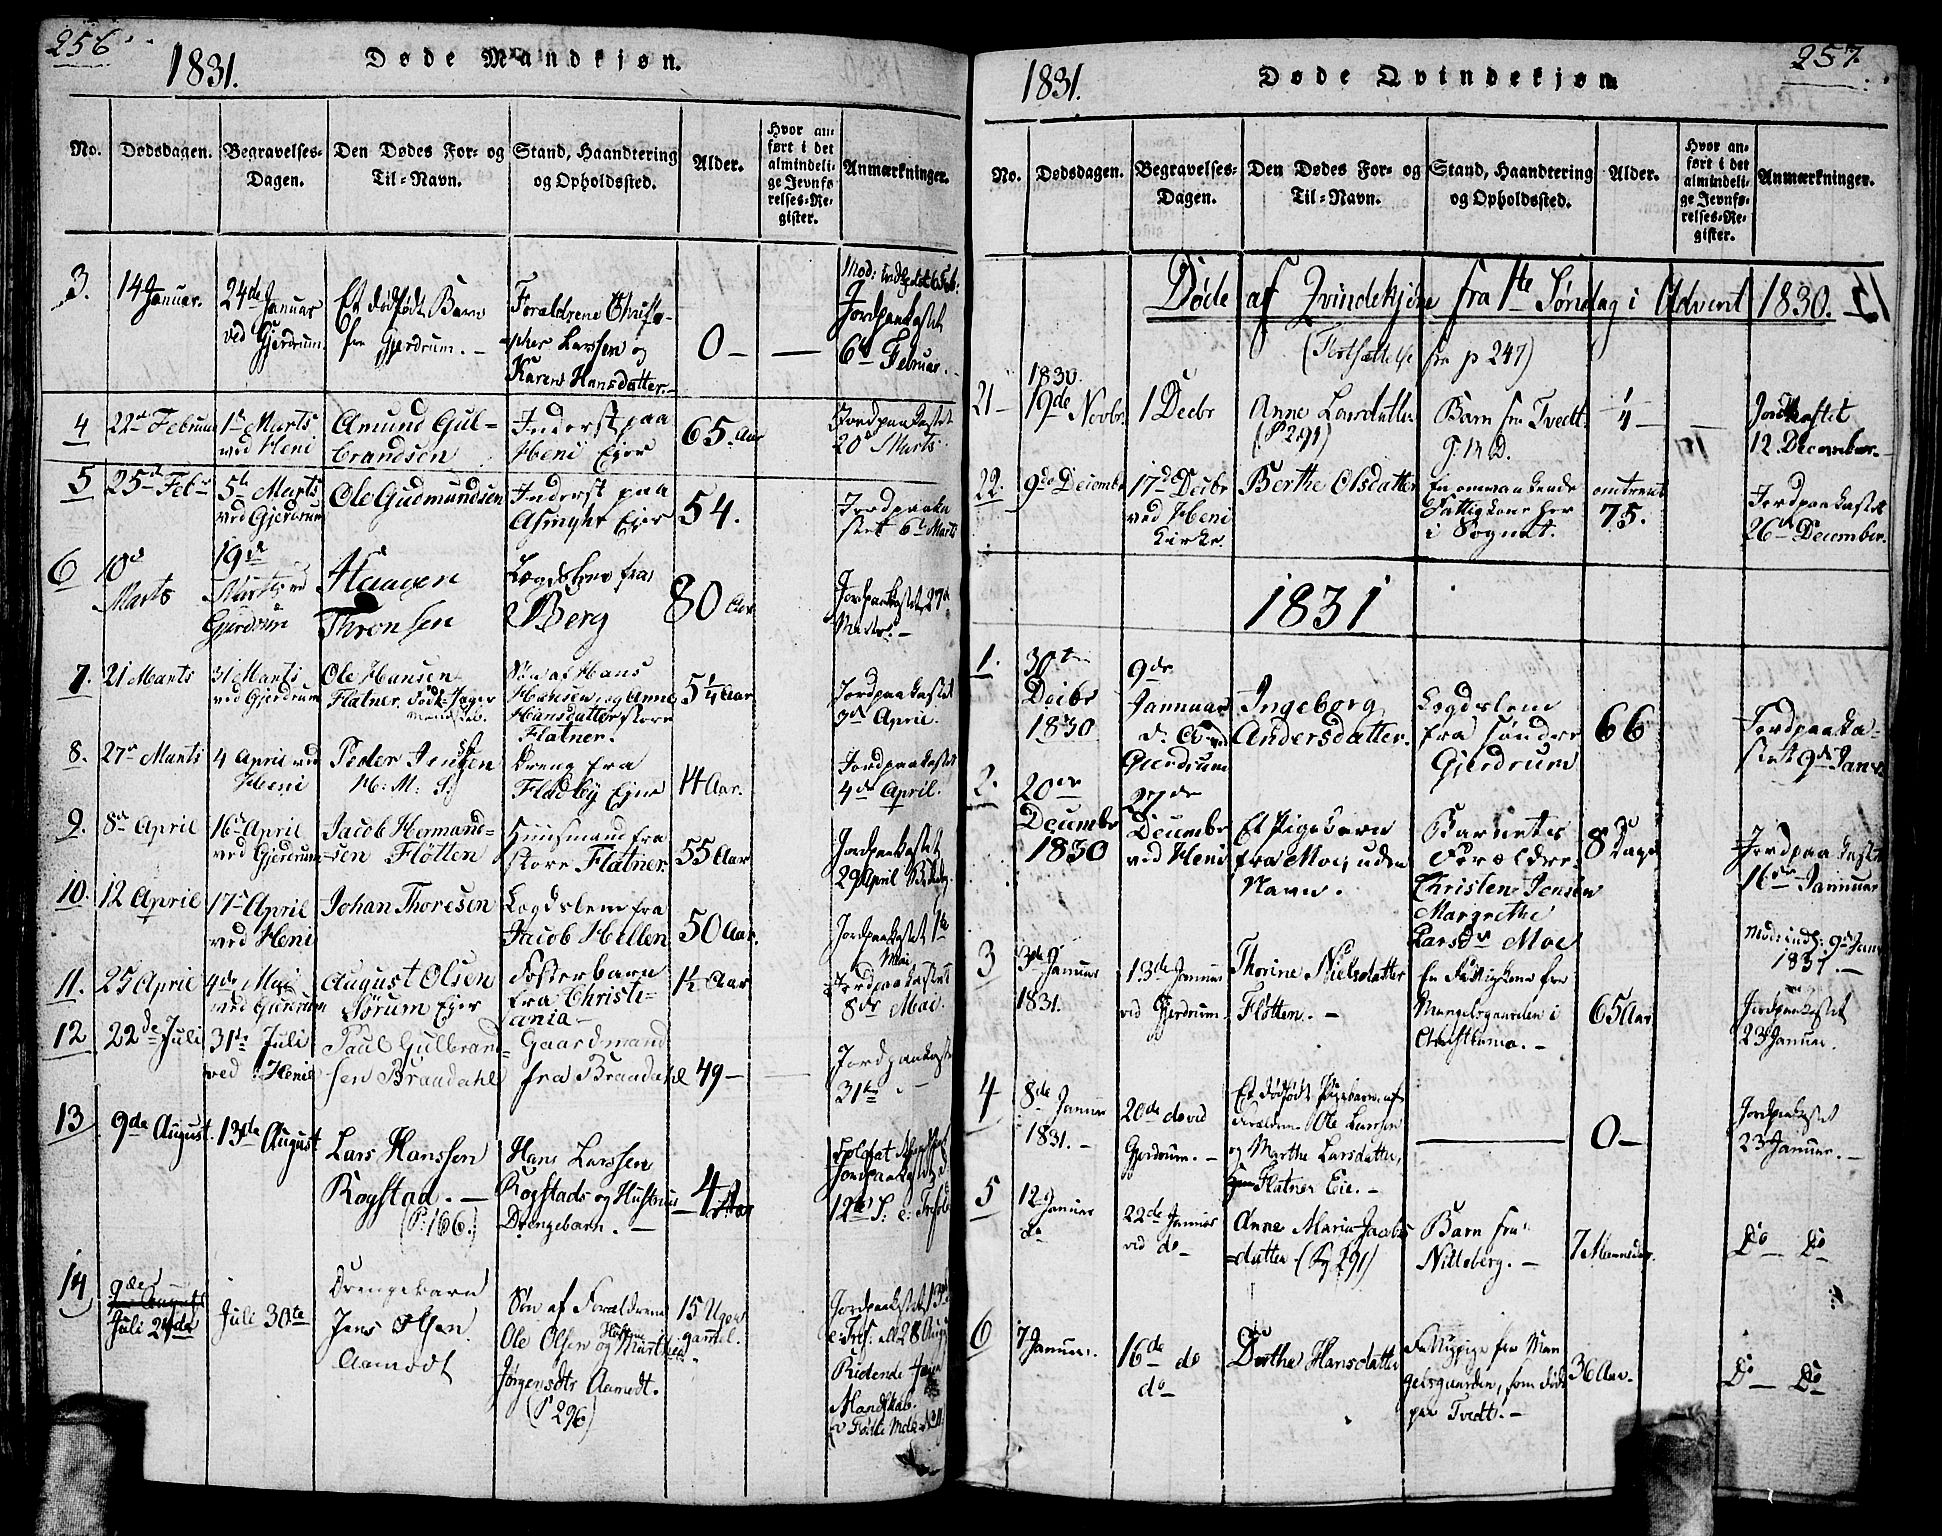 256
1831.
Døde Mandkjøn.
No.
Dødsdagen.
Begravelses-
Dagen.
Den Dødes For- og
Til-Navn.
Stand, Haandtering
og Opholdssted.
Alder.
Hvor an-
ført i det
almindeli-
ge Jevnfø-
relses-Re-
gister.
Anmærkninger.
3.
14 Januar.
24de Januar
ved Gjerdrum
Et dødfødt Barn
fra Gjerdrum. -
Forældrene Christo-
pher Larsen og
Karen Hansdatter. -
0 -
Jordpaakastet
6te Februar.
4
22de Februar
1ste Marts
ved Heni
Amund Gul-
brandsen
Inderst paa
Heni Ejer
65. Aar
Jordpaakastet
20de Marts.
5
25de Febr
5te Marts
ved Gjerdrum
Ole Gudmundsen
Inderst paa
Ejer
54.
Jordpaaka
stet 6te Marts
6
10de
Marts
19de
Marts ved
Gjerdrum
Haagen
Thronsen
Lægdslem fra
Berg
80 Aar
Jordpaakastet 27de
Marts. -
7.
21 Marts
31 Marts
ved Gjerdrum
Ole Hansen
Flatner
Søn af Hans
Hansen og Anne
Hansdatter store
Flatner.
5 1/4 Aar
Jordpaakastet
3de April.
8.
27de Marts
4 April ved
Heni
Peder Jensen
H: M: S:
Dreng fra
Fladby Ejer
14 Aar.
Jordpaakastet
4de April.
9.
8de April
16de April
ved Gjerdrum
Jacob Hermand-
sen Fløtten
Huusmand fra
store Flatner
55 Aar
Jordpaakastet
29 April
10.
12 April
17de April
ved Heni
Johan Thoresen
Lægdslem fra
Jacob Hellen
50 Aar.
Jordpaakastet 1ste
Mai
11.
25 April
4de Mai
ved Gjerdrum
August Olsen
Sørum Ejer
Fosterbarn
fra Christi-
ania -
1 1/2 Aar
Jordpaakastet
8de Mai.
12
22de Juli
31te Juli
ved Heni
Paul Gulbrand-
sen Braadahl
Gaardmand
fra Braadahl
49 -
Jordpaakast
31te
13
9de August
13de August
Lars Hanssen
Kogstad. -
(P. 166.)
Hans Larssen
Kogstads og Hustrues
Drengebarn. -
4 Aar
Jordpaakastet
14
9de August
Juli 24de
Juli 30te
Drengebarn
Jens Olsen
Aamodt
Søn af Forældrene
Ole Olsen og Hustrue Marthea
Jørgensdtr Aamodt.
(P 296)
15 Uger
gammel.
Jordpaakastet 13de
Ridende
Mandskab.
257.
1831.
Døde Qvindekjøn
No.
Dødsdagen.
Begravelses-
Dagen.
Den Dødes For- og
Til-Navn.
Stand, Haandtering
og Opholdssted.
Alder.
Hvor an-
ført i det
almindeli-
ge Jevnfø-
relses-Re-
gister.
Anmærkninger.
Døde af Qvindekjøn fra 1ste Søndag i Advent 1830.
(Fortsættelse fra p 247)
21 -
1830.
19de Novbr.
1 Decbr
Anne Larsdatter
(P 291)
Barn fra Tvedt.
1/4
Jordkastet
12. December. -
22.
9de Decembr
17de Decbr
ved Heni
Kirke.
Berthe Olsdatter
En omvankende
Fattigkone her
i Sognet.
omtrent
75.
Jordpaakastet
26de December.
1831
1.
30te
Decbr
1830
9de
Januar
Gjerdrum
Ingeborg
Andersdatter.
Lægdslem
fra søndre
Gjerdrum
66
Jordpaaka-
stet 9de Januar
2.
20de
Decembr
1830
27de
Decembr
ved Heni
Et Pigebarn
fra Moe, uden
Navn.
Barnets
Forældre.
Christen Jensen
Margrethe
Larsdr Moe
8 Dage
Jordpaakastet
16de Januar
Moder indl: 9de Januar
1831. -
3
3de Januar
1831.
13de Januar
ved Gjerdrum.
Thorine Nielsdatter
Fløtten. -
En Fattigkone fra
Mangelsgaarden i
Christiania. -
65 Aar
Jordpaakastet
23 Januar.
4
8de Januar
1831. -
20de do ved
Gjerdrum. -
Et dødfødt Pigebarn af
Forældrene Ole Larssen
og Marthe Larsdatter,
Flatner Eie. -
0 -
Jordpaakastet
23 Januar. -
5
12 Januar
do
22de Januar
ved do -
Anne Maria Jacobs
=datter (P 291)
Barn fra
Nilleberg. -
7 Maaneder.
Do - Do
6
7 Januar.
16de do
do
Dorthe Hansdatter
Fattigpige fra Man
gelsgaarden, som døde
paa Tvedt. -
36 Aar -
Do - Do